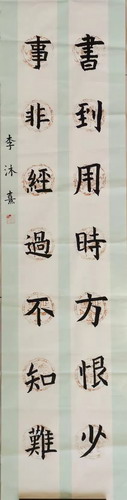 書到用時方恨少
事非經過不知難
李沐熹